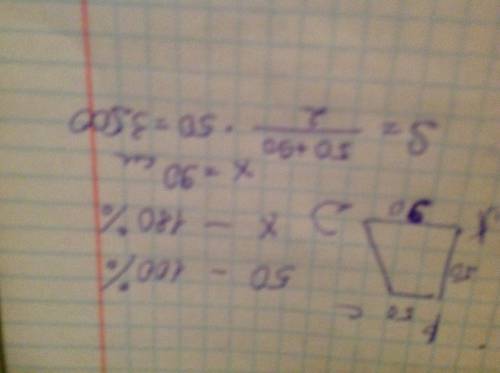 B 50 C
50 50 – 100%
A 90 D x – 180%
x = 90 см
S = 50+90 / 2 · 50 = 3500